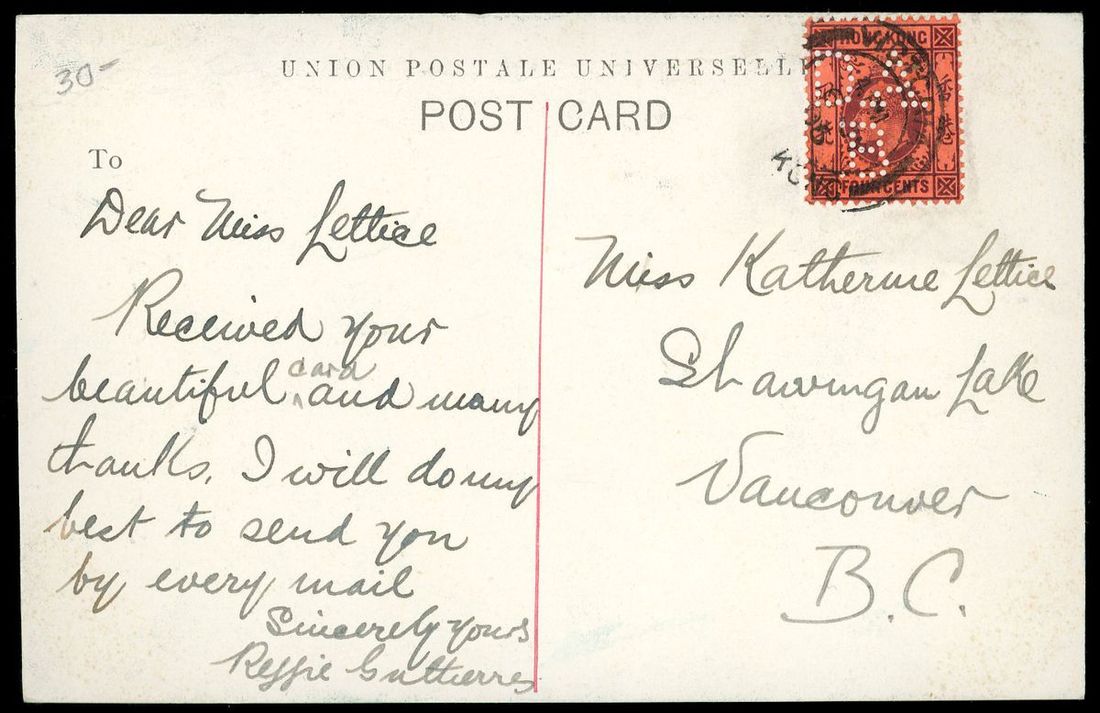 30-
UNION POSTALE UNIVERSELLE
POST CARD
To
HONGKONG
香港
FOUR CENTS
Dear Miss Lettice
Received your
beautiful card and many
thanks. I will do my
best to send you
by every mail
Sincerely yours
Reggie Gutierres
Miss Katherine Lettice
Shawnigan Lake
Vancouver
B.C.